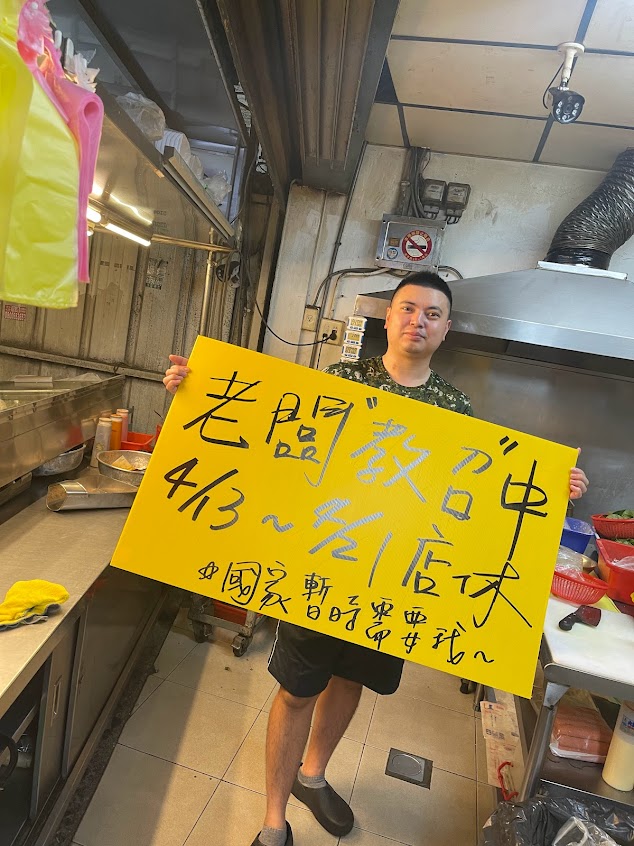 老闆"教召"中
4/13～4/21店休
*國家暫時需要我~